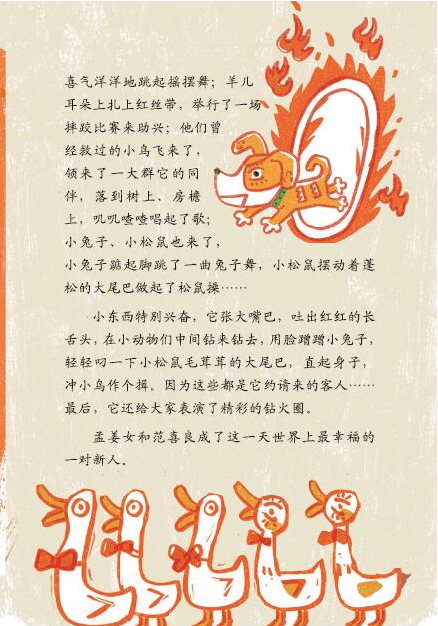 喜气洋洋地跳起摇摆舞；羊儿
耳朵上扎上红丝带，举行了一场
摔跤比赛来助兴；他们曾
经救过的小鸟飞来了，
领来了一大群它的同
伴，落到树上、房檐
上，叽叽喳喳唱起了歌；
小兔子、小松鼠也来了，
小兔子踮起脚跳了一曲兔子舞，小松鼠摆动着蓬
松的大尾巴做起了松鼠操……
小东西特别兴奋，它张大嘴巴，吐出红红的长
舌头，在小动物们中间钻来钻去，用脸蹭蹭小兔子，
轻轻叼一下小松鼠毛茸茸的大尾巴，直起身子，
冲小鸟作个揖。因为这些都是它约请来的客人……
最后，它还给大家表演了精彩的钻火圈。
孟姜女和范喜良成了这一天世界上最幸福的
一对新人。